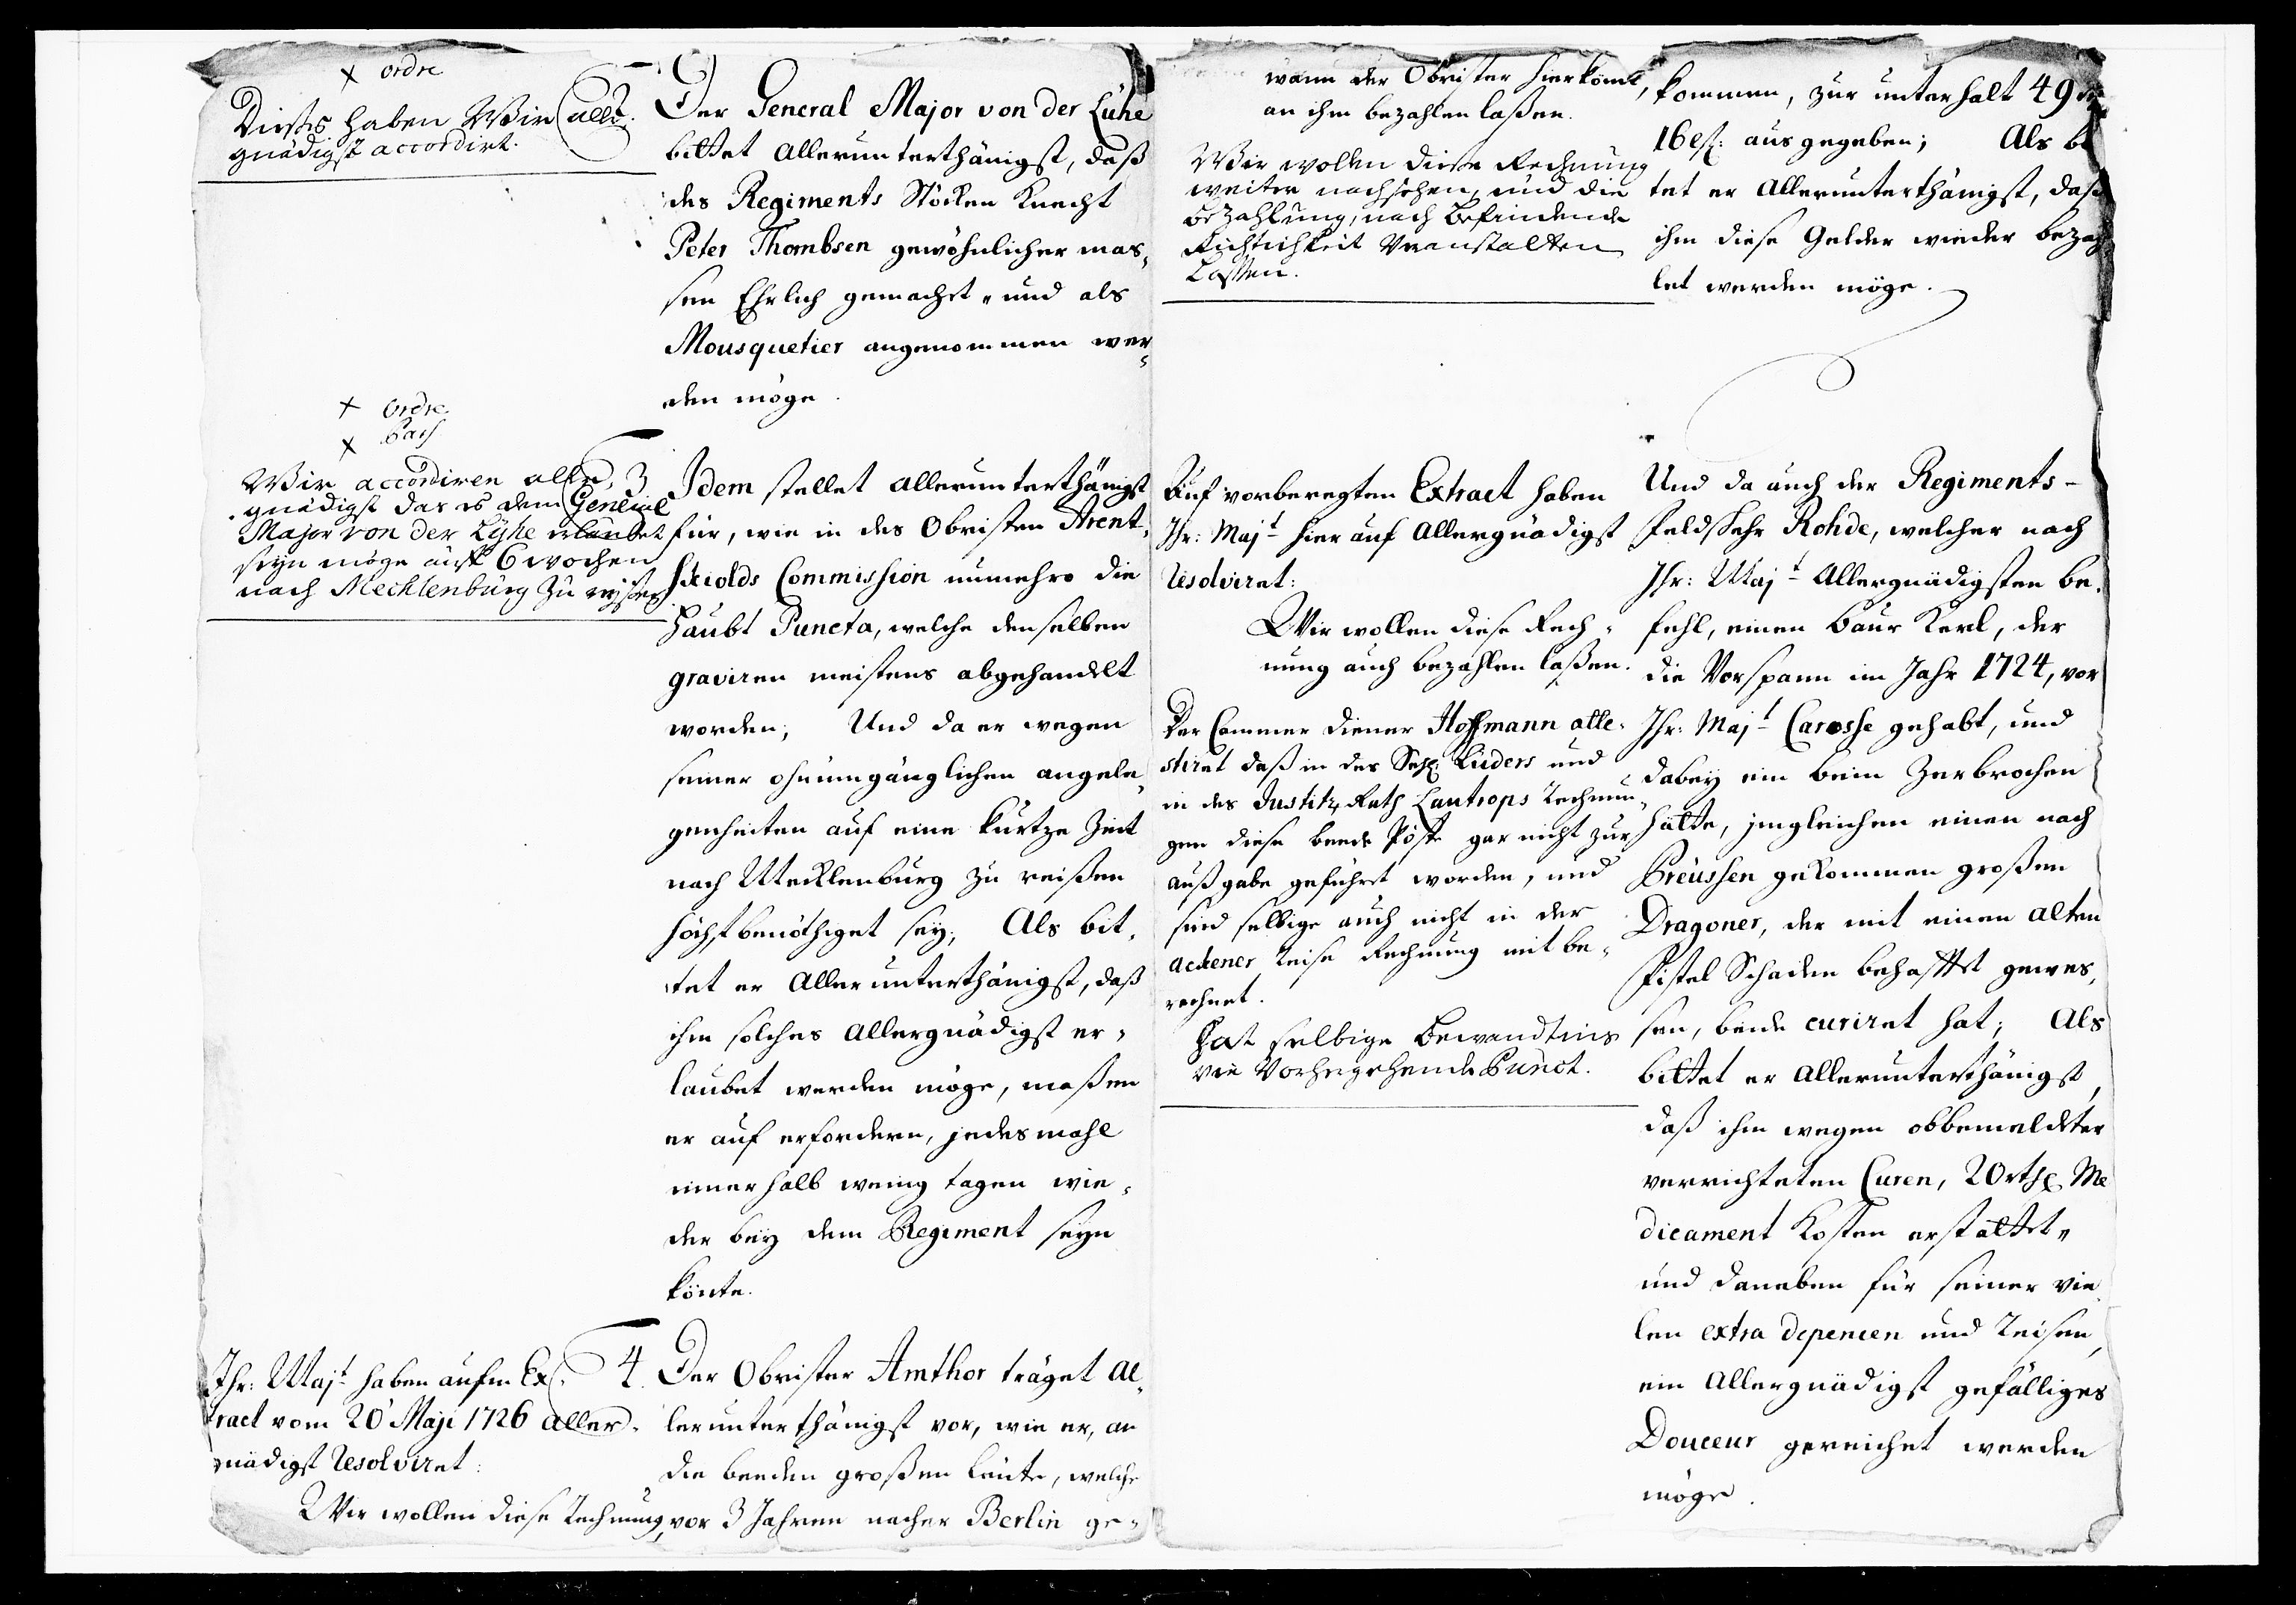 + ordre
Dießes haben Wir aller
gnädigst accordirt.
2
Der General Major von der Lühe
bittet allerunterthänigst, daß
des Regiments Stöcken Knecht
Peter Thombsen gewöhnlicher mas¸
sen Ehrlich gemachet, und als
Mousquetier angenommen wer¸
den möge.
+ ordre
+ Pass
Wir accordiren aller
gnädigst das es dem General
Major von der Lyhe erlaubet
seyn möge auff 6 wochen
nach Mecklenburg zu reyßen
3
Idem stellet allerunterthänigst
für, wie in des Obristen Arent¸
schiolds Commission numehro die
Haubt Puncta, welche denselben
graviren meistens abgehandelt
worden; Und da er wegen
seiner ohnumgänglichen angele¸
genheiten auf eine kurtze Zeit
nach Mecklenburg zu reißen
höchst benöthiget sey; Als bit¸
tet er Allerunterthänigst, daß
ihm solches Allergnädigst er¸
laubet werden möge, maßen
er auf erfordern, jedesmahl
innerhalb wenig tagen wie¸
der bey dem Regiment seyn
könte.
Ihr: Majt haben aufm Ex¸
tract vom 20 Maji 1726 aller¸
gnädigst Resolviret:
Wir wollen diese Rechnung,
4.
Der Obrister Amthor träget Al¸
lerunterthänigst vor, wie er, an
die beeden großen leute, welche
vor 3 Jahren nacher Berlin ge¸
wann der Obrister hierkömt,
an ihm bezahlen laßen.
Wir wollen diese Rechnung
weiter nachsehen, und die
Bezahlung, nach befindende
Richtichkeit veranstalten
Lassen.
kommen, zur unterhalt 49
16 ß. ausgegeben; Als bi
tet er Allerunterthänigst, daß
ihm diese Gelder wieder bezah
let werden möge.
Auf vorberegten Extract haben
Ihr: Majt hierauf Allergnädigst
Resolviret:
Wir wollen diese Rech¸
nung auch bezahlen laßen.
Der Cammer diener Hoffmann atte¸
stiret daß in des Lüders und
in des Justitz Rath Lautrops Rechnun¸
gen diese beede Poste gar nicht zur
außgabe geführet worden, und
sind selbige auch nicht in der
Ackener Reise Rechnung mit be¸
rechnet.
Hat selbige Bewandtnis
wie Vorhergehende Punct.
Und da auch der Regiments-
feldscher Rohde, welcher nach
Ihr: Majt Allergnädigsten be¸
fehl, einen Baur Kerl, der
die Vorspann im Jahr 1724, vor
Ihr: Majt Carosse gehabt, und
dabey ein bein Zerbrochen
hatte, imgleichen einen nach
Preussen gekommen großen
Dragoner, der mit einen alten
Fistel Schaden behafftet gewes¸
sen, beede curiret hat; Als
bittet er Allerunterthänigst,
daß ihm wegen obbemeldter
verrichteten Curen, 20 rthl Me
dicament Kosten erstattet,
und daneben für seiner vie
len extra depencen und Reisen,
ein Allergnädigst gefälliges
Douceur gereichet werden
möge.